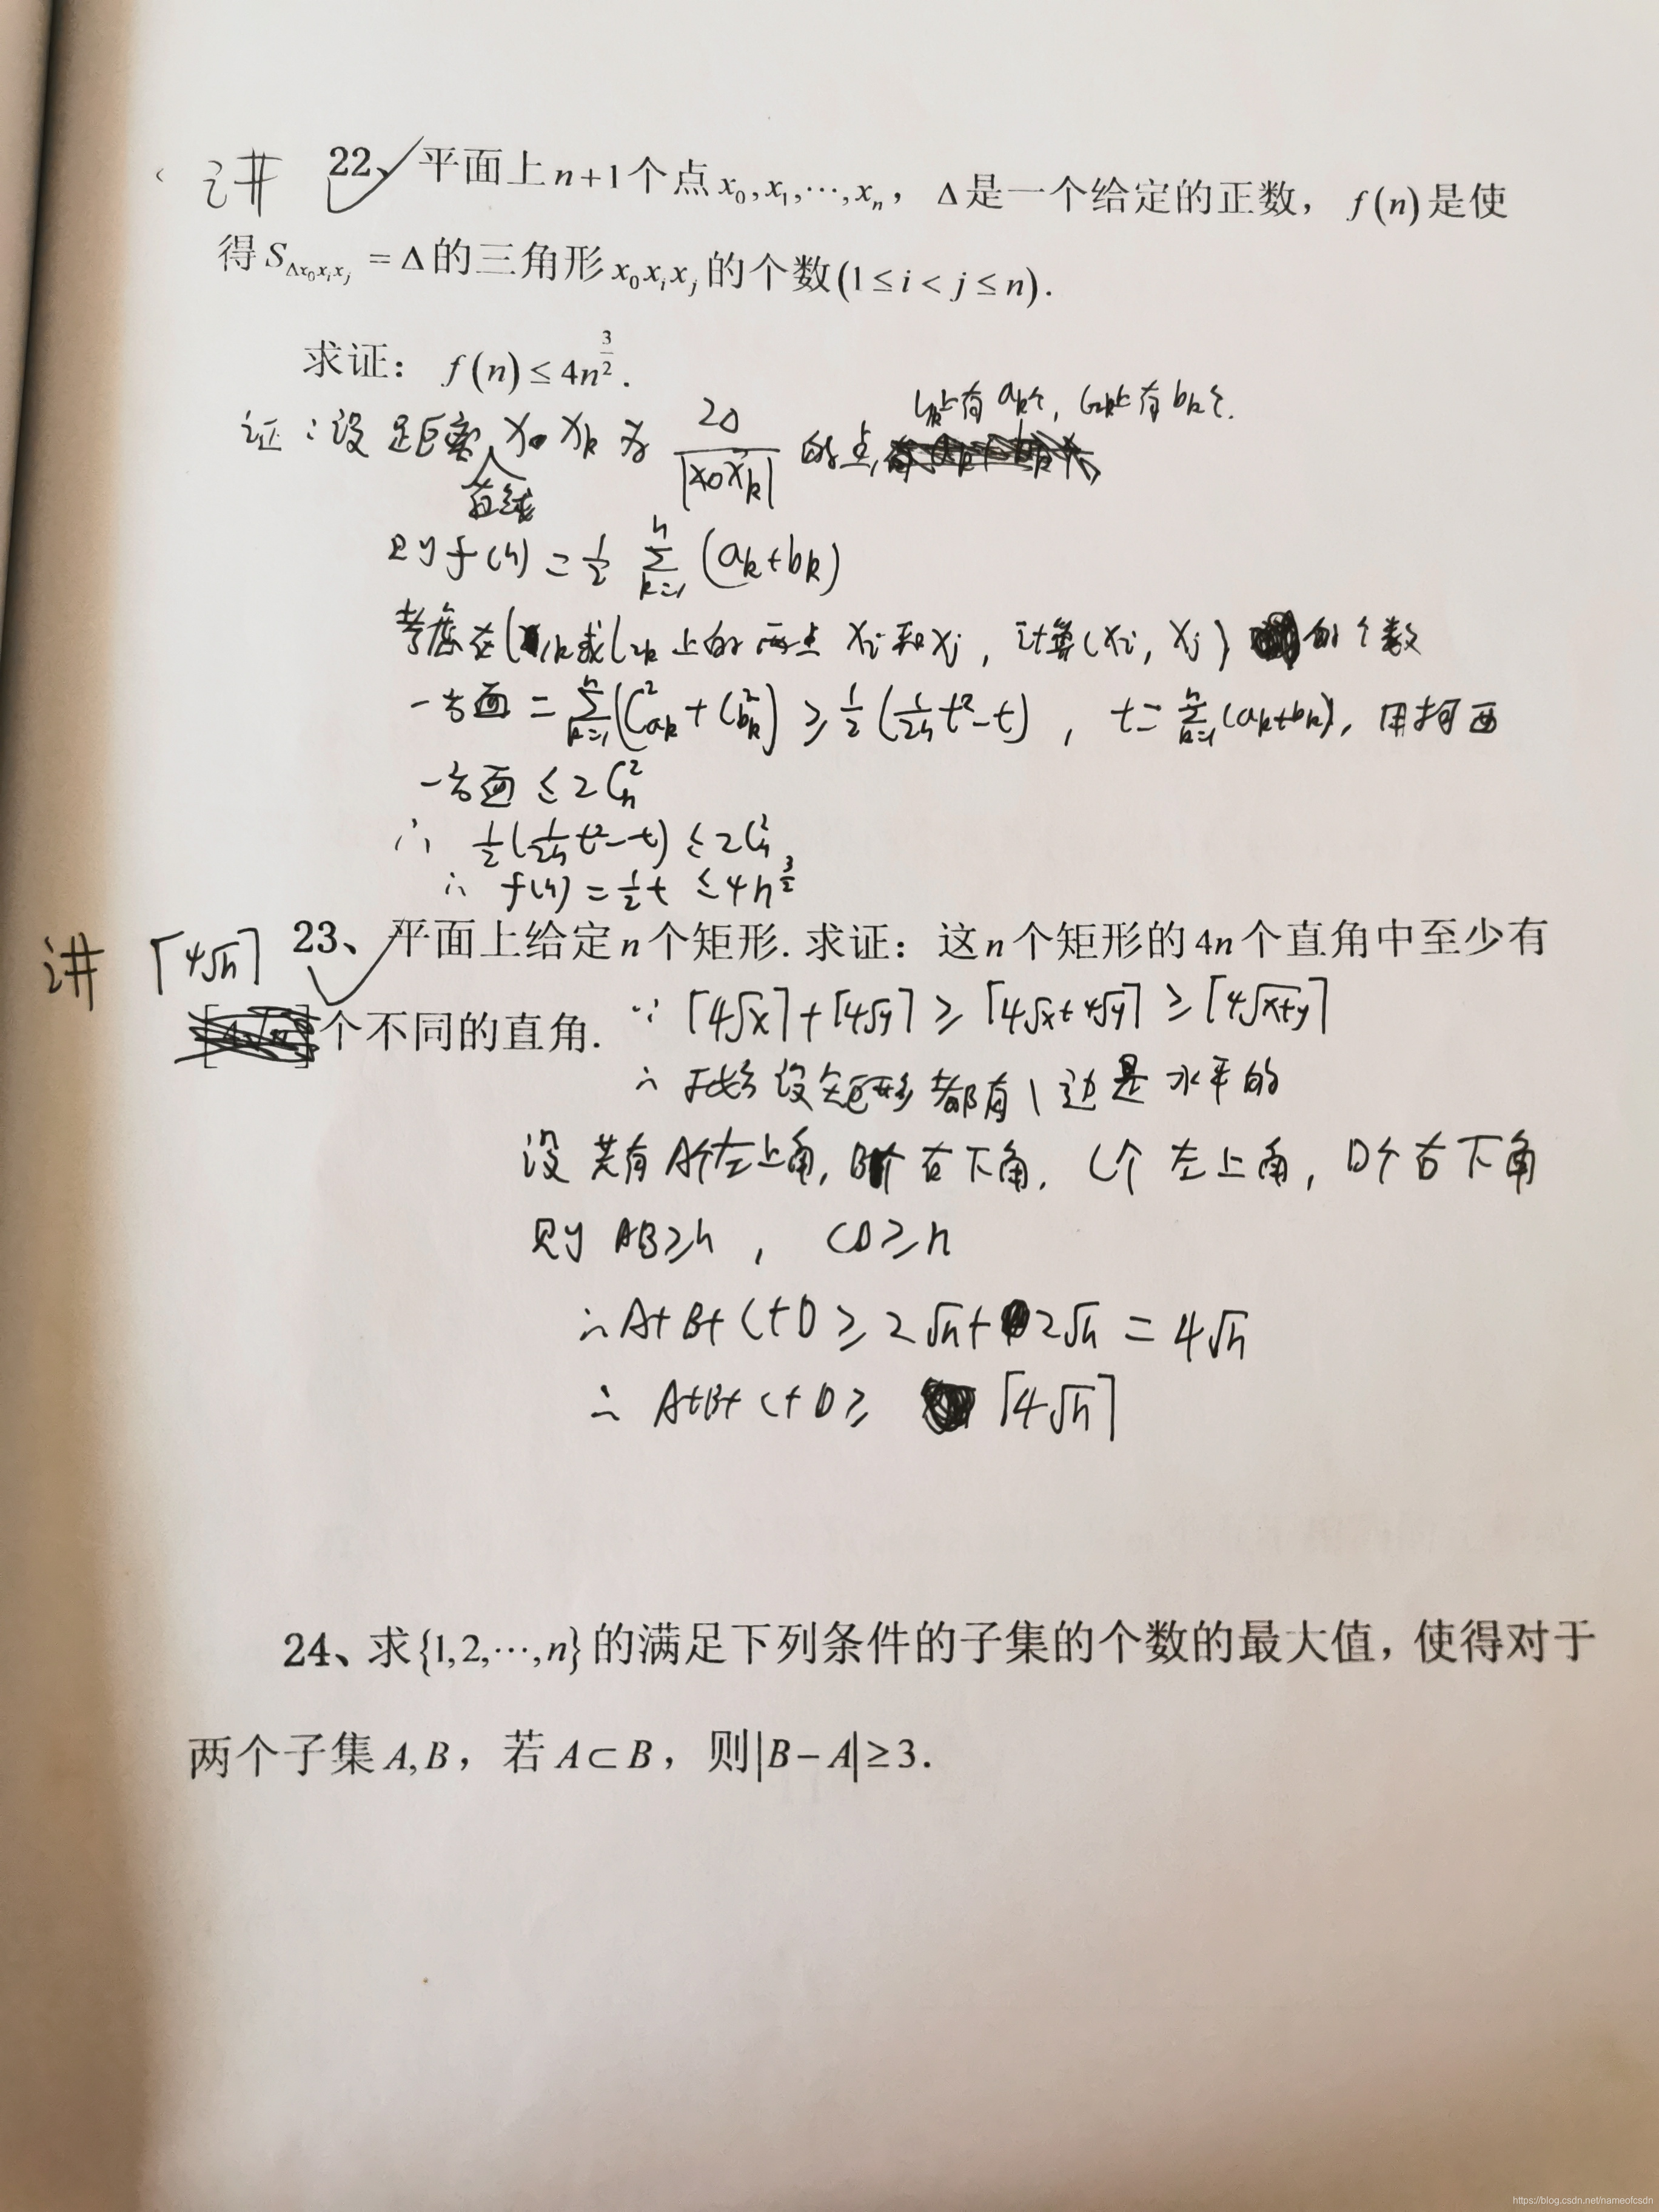 讲 22、平面上n+1个点x₀,x₁,⋯,xₙ，Δ是一个给定的正数，f(n)是使
得S_{Δx₀xᵢxⱼ} = Δ的三角形x₀xᵢxⱼ的个数(1≤i<j≤n).
求证：f(n)≤4n^{3/2}.
l₁ₖ上有aₖ个，l₂ₖ上有bₖ个.
证：设足距离直线x₀xₖ为 2Δ/|x₀xₖ| 的点,
则f(n) = 1/2 ∑_{k=1}^{n} (aₖ+bₖ)
考虑在l₁ₖ或l₂ₖ上的两点xᵢ和xⱼ，计算(xᵢ, xⱼ)的个数
一方面 = ∑_{k=1}^{n}(C²_{aₖ} + C²_{bₖ}) ≥ 1/2 (1/2n t² - t)，t = ∑_{k=1}^{n}(aₖ+bₖ)，用柯西
一方面 ≤ 2C²ₙ
∴ 1/2(1/2n t² - t) ≤ 2C²ₙ
∴ f(n) = 1/2 t ≤ 4n^{3/2}
讲 ⌈4√n⌉ 23、平面上给定n个矩形. 求证：这n个矩形的4n个直角中至少有
个不同的直角. ∵ ⌈4√x⌉+⌈4√y⌉ ≥ ⌈4√x+4√y⌉ ≥ ⌈4√x+y⌉
∴ 不妨设矩形都有1边是水平的
设共有A个左上角, B个右下角, C个左上角, D个右下角
则 AB≥n ， CD≥n
∴ A+B+C+D ≥ 2√n+2√n = 4√n
∴ A+B+C+D ≥ ⌈4√n⌉
24、求{1,2,⋯,n}的满足下列条件的子集的个数的最大值，使得对于
两个子集A,B，若A⊂B，则|B−A|≥3.
https://blog.csdn.net/nameofcsdn